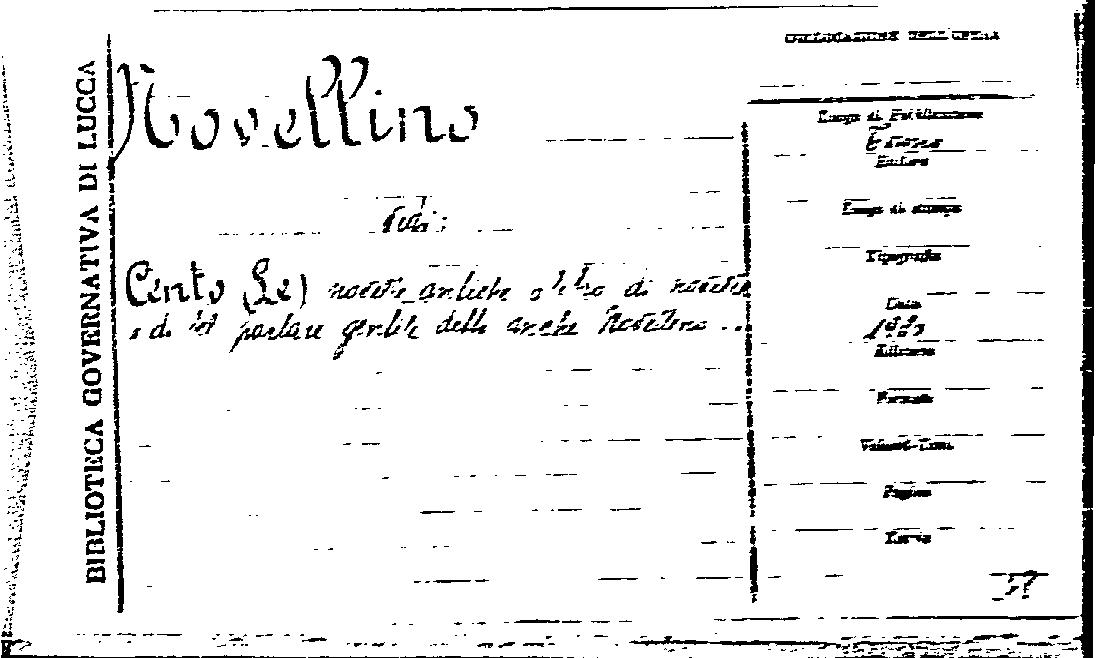 BIBLIOTECA GOVERNATIVA DI LUCCA
Novellino
Vedi:
Cento (Le) novelle antiche o libro di novelle
e di bel parlare gentile detto anche Novellino ...
COLLOCAZIONE DELL'OPERA
Luogo di Pubblicazione
Editore
Luogo di stampa
Tipografia
Data
Edizione
Formato
Volumi-Tomi
Pagine